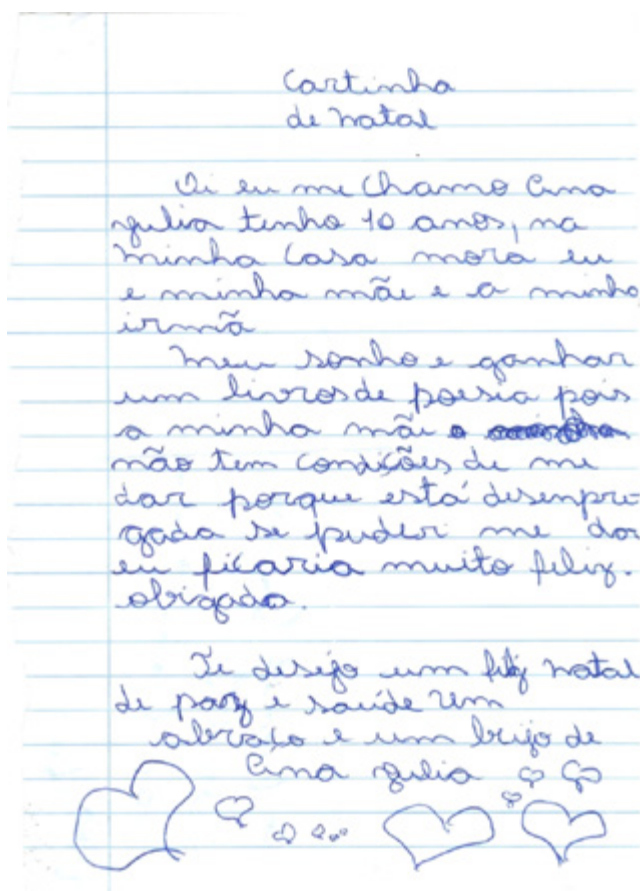 Cartinha
de natal
Oi eu me chamo Ana
julia tenho 10 anos, na
minha casa mora eu
e minha mãe e a minha
irmã
meu sonho e ganhar
um livros de poesia pois
a minha mãe
não tem condições de me
dar porque está desenpre
gada se puder me dar
eu ficaria muito feliz.
obrigado.
Te desejo um feliz natal
de paz e saúde um
abraço e um beijo de
Ana julia